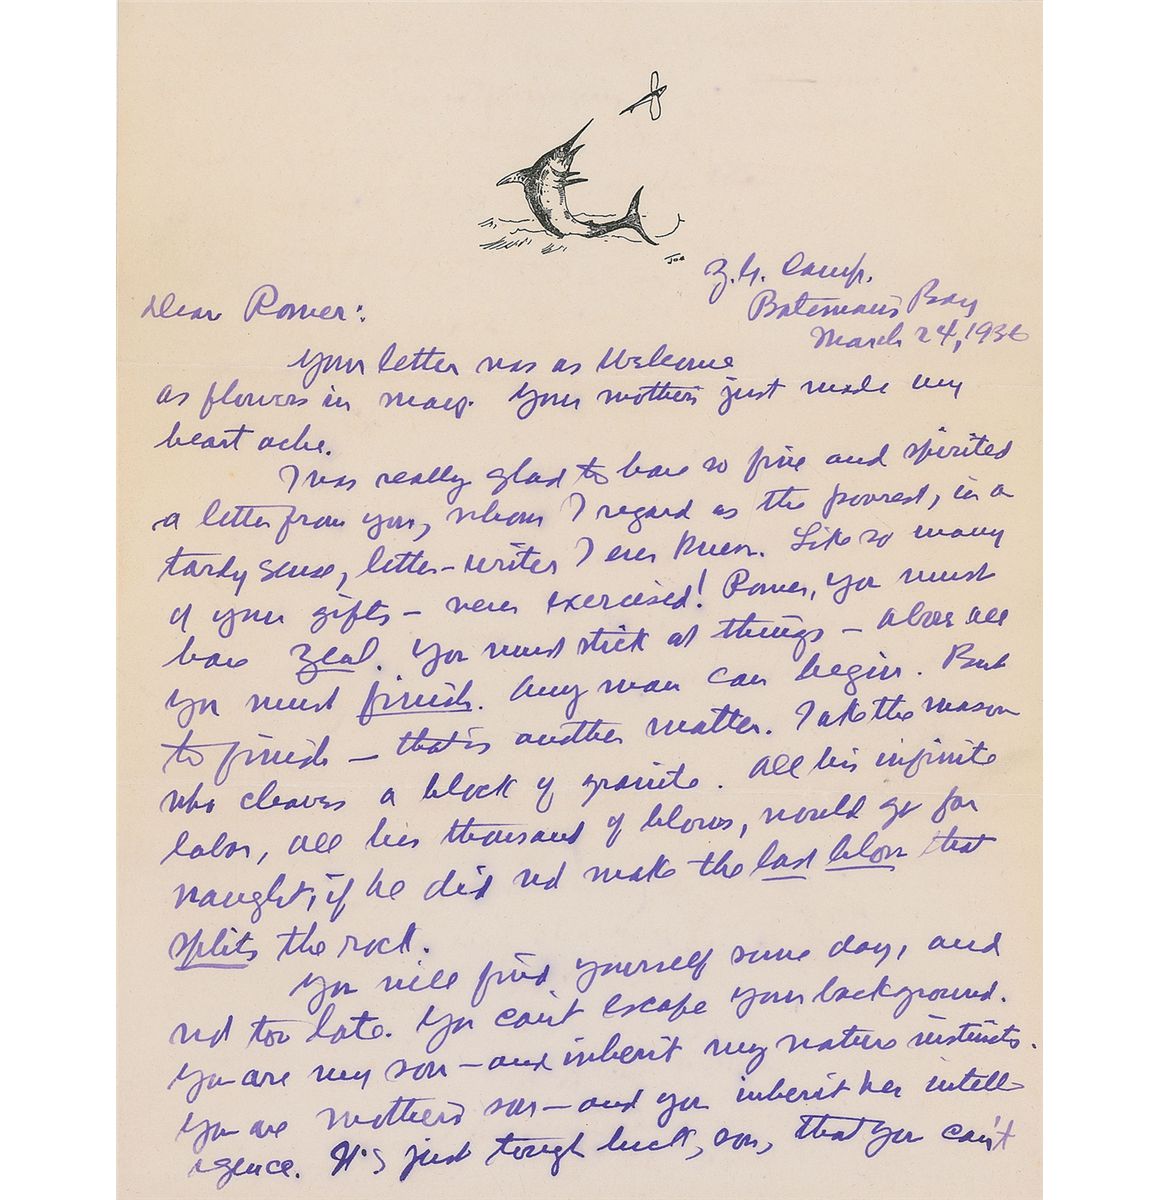 Joe
Z.G. Camp.
Bateman's Bay
March 24, 1936
Dear Romer:
Your letter was as welcome
as flowers in May. Your mother's just made my
heart ache.
I was really glad to have so fine and spirited
a letter from you, whom I regard as the poorest, in a
tardy sense, letter-writer I ever knew. Like so many
of your gifts — never exercised! Romer, you must
have zeal. You must stick at things — above all
you must finish. Any man can begin. But
to finish — that is another matter. Take the mason
who cleaves a block of granite. All his infinite
labor, all his thousand of blows, would go for
naught, if he did not make the last blow that
splits the rock.
You will find yourself some day, and
not too late. You can't escape your background.
You are my son — and inherit my nature instincts.
You are mother's son — and you inherit her intell-
igence. It's just tough luck, son, that you can't